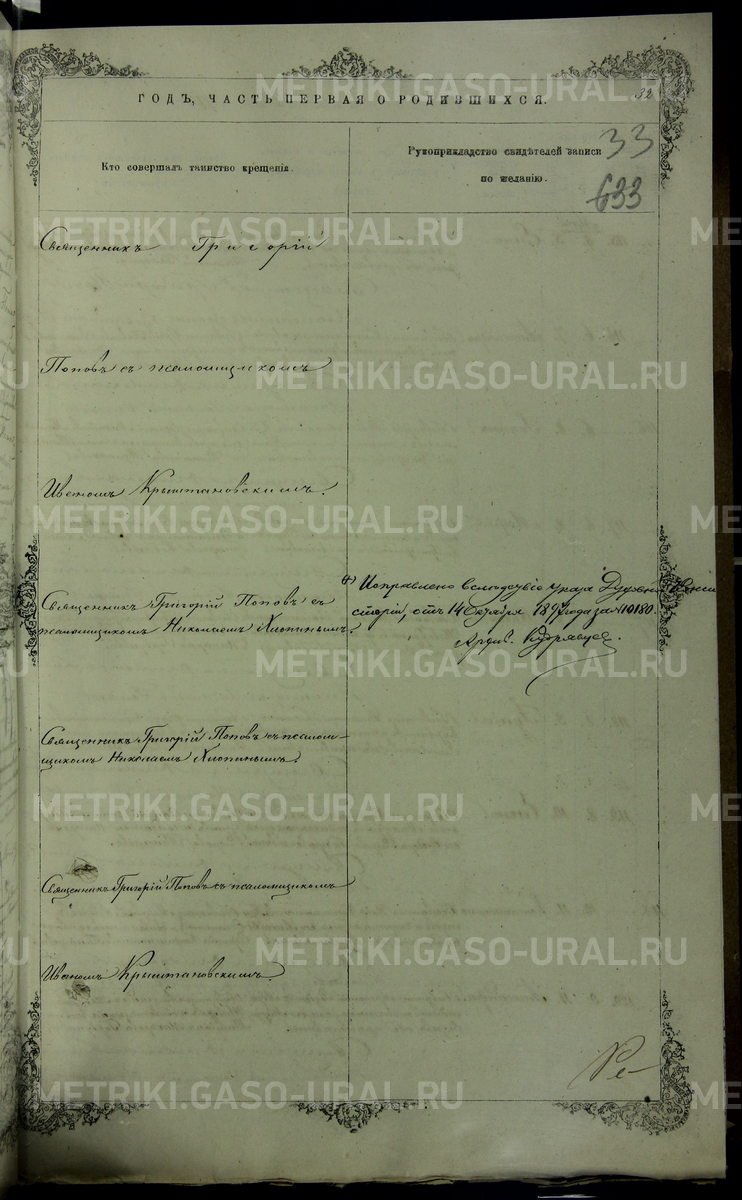 ГОДЪ, ЧАСТЬ ПЕРВАЯ О РОДИВШИХСЯ.
33
Кто совершалъ таинство крещенія.
Рукоприкладство свидѣтелей записи
по желанію.
33
633
Священникъ Григорій
Поповъ съ псаломщикомъ
Иваномъ Крыштановскимъ.
Священникъ Григорій Поповъ съ
псаломщикомъ Николаемъ Хлопинымъ.
Исправлено вслѣдствіе указа Духовн. Конси
сторіи, отъ 14 Октября 1897 года за № 10180.
Священникъ Григорій Поповъ съ псалом-
щикомъ Николаемъ Хлопинымъ.
Священникъ Григорій Поповъ съ псаломщикомъ
Иваномъ Крыштановскимъ.
METRIKI.GASO-URAL.RU